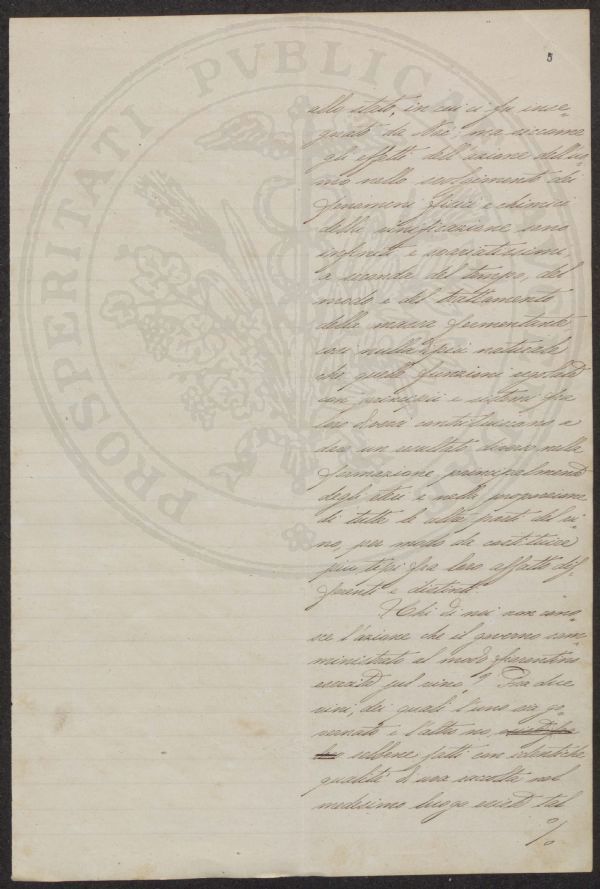 5
allo stato, in cui ci fu inse-
gnato da Noè; ma siccome
gli effetti dell'azione dell'uo-
mo nello svolgimento dei
fenomeni fisici e chimici
della vinificazione sono
infiniti e svariatissimi,
a seconda del tempo, del
modo e del trattamento
della massa fermentante,
così nulla di più naturale
che queste funzioni regolate
con principii e sistemi fra
loro diversi contribuiscano a
dare un resultato diverso nella
formazione principalmente
degli eteri e nella proporzione
di tutte le altre parti del vi-
no, per modo da costituire
più tipi fra loro affatto dif-
ferenti e distinti.
Chi di noi non cono-
sce l'azione che il governo som-
ministrato al modo fiorentino
esercita sul vino? Fra due
vini, dei quali l'uno sia go-
vernato e l'altro no,
sebbene fatti con identiche
qualità di uva raccolta nel
medesimo luogo esiste tal
%
PROSPERITATI PVBLICAE